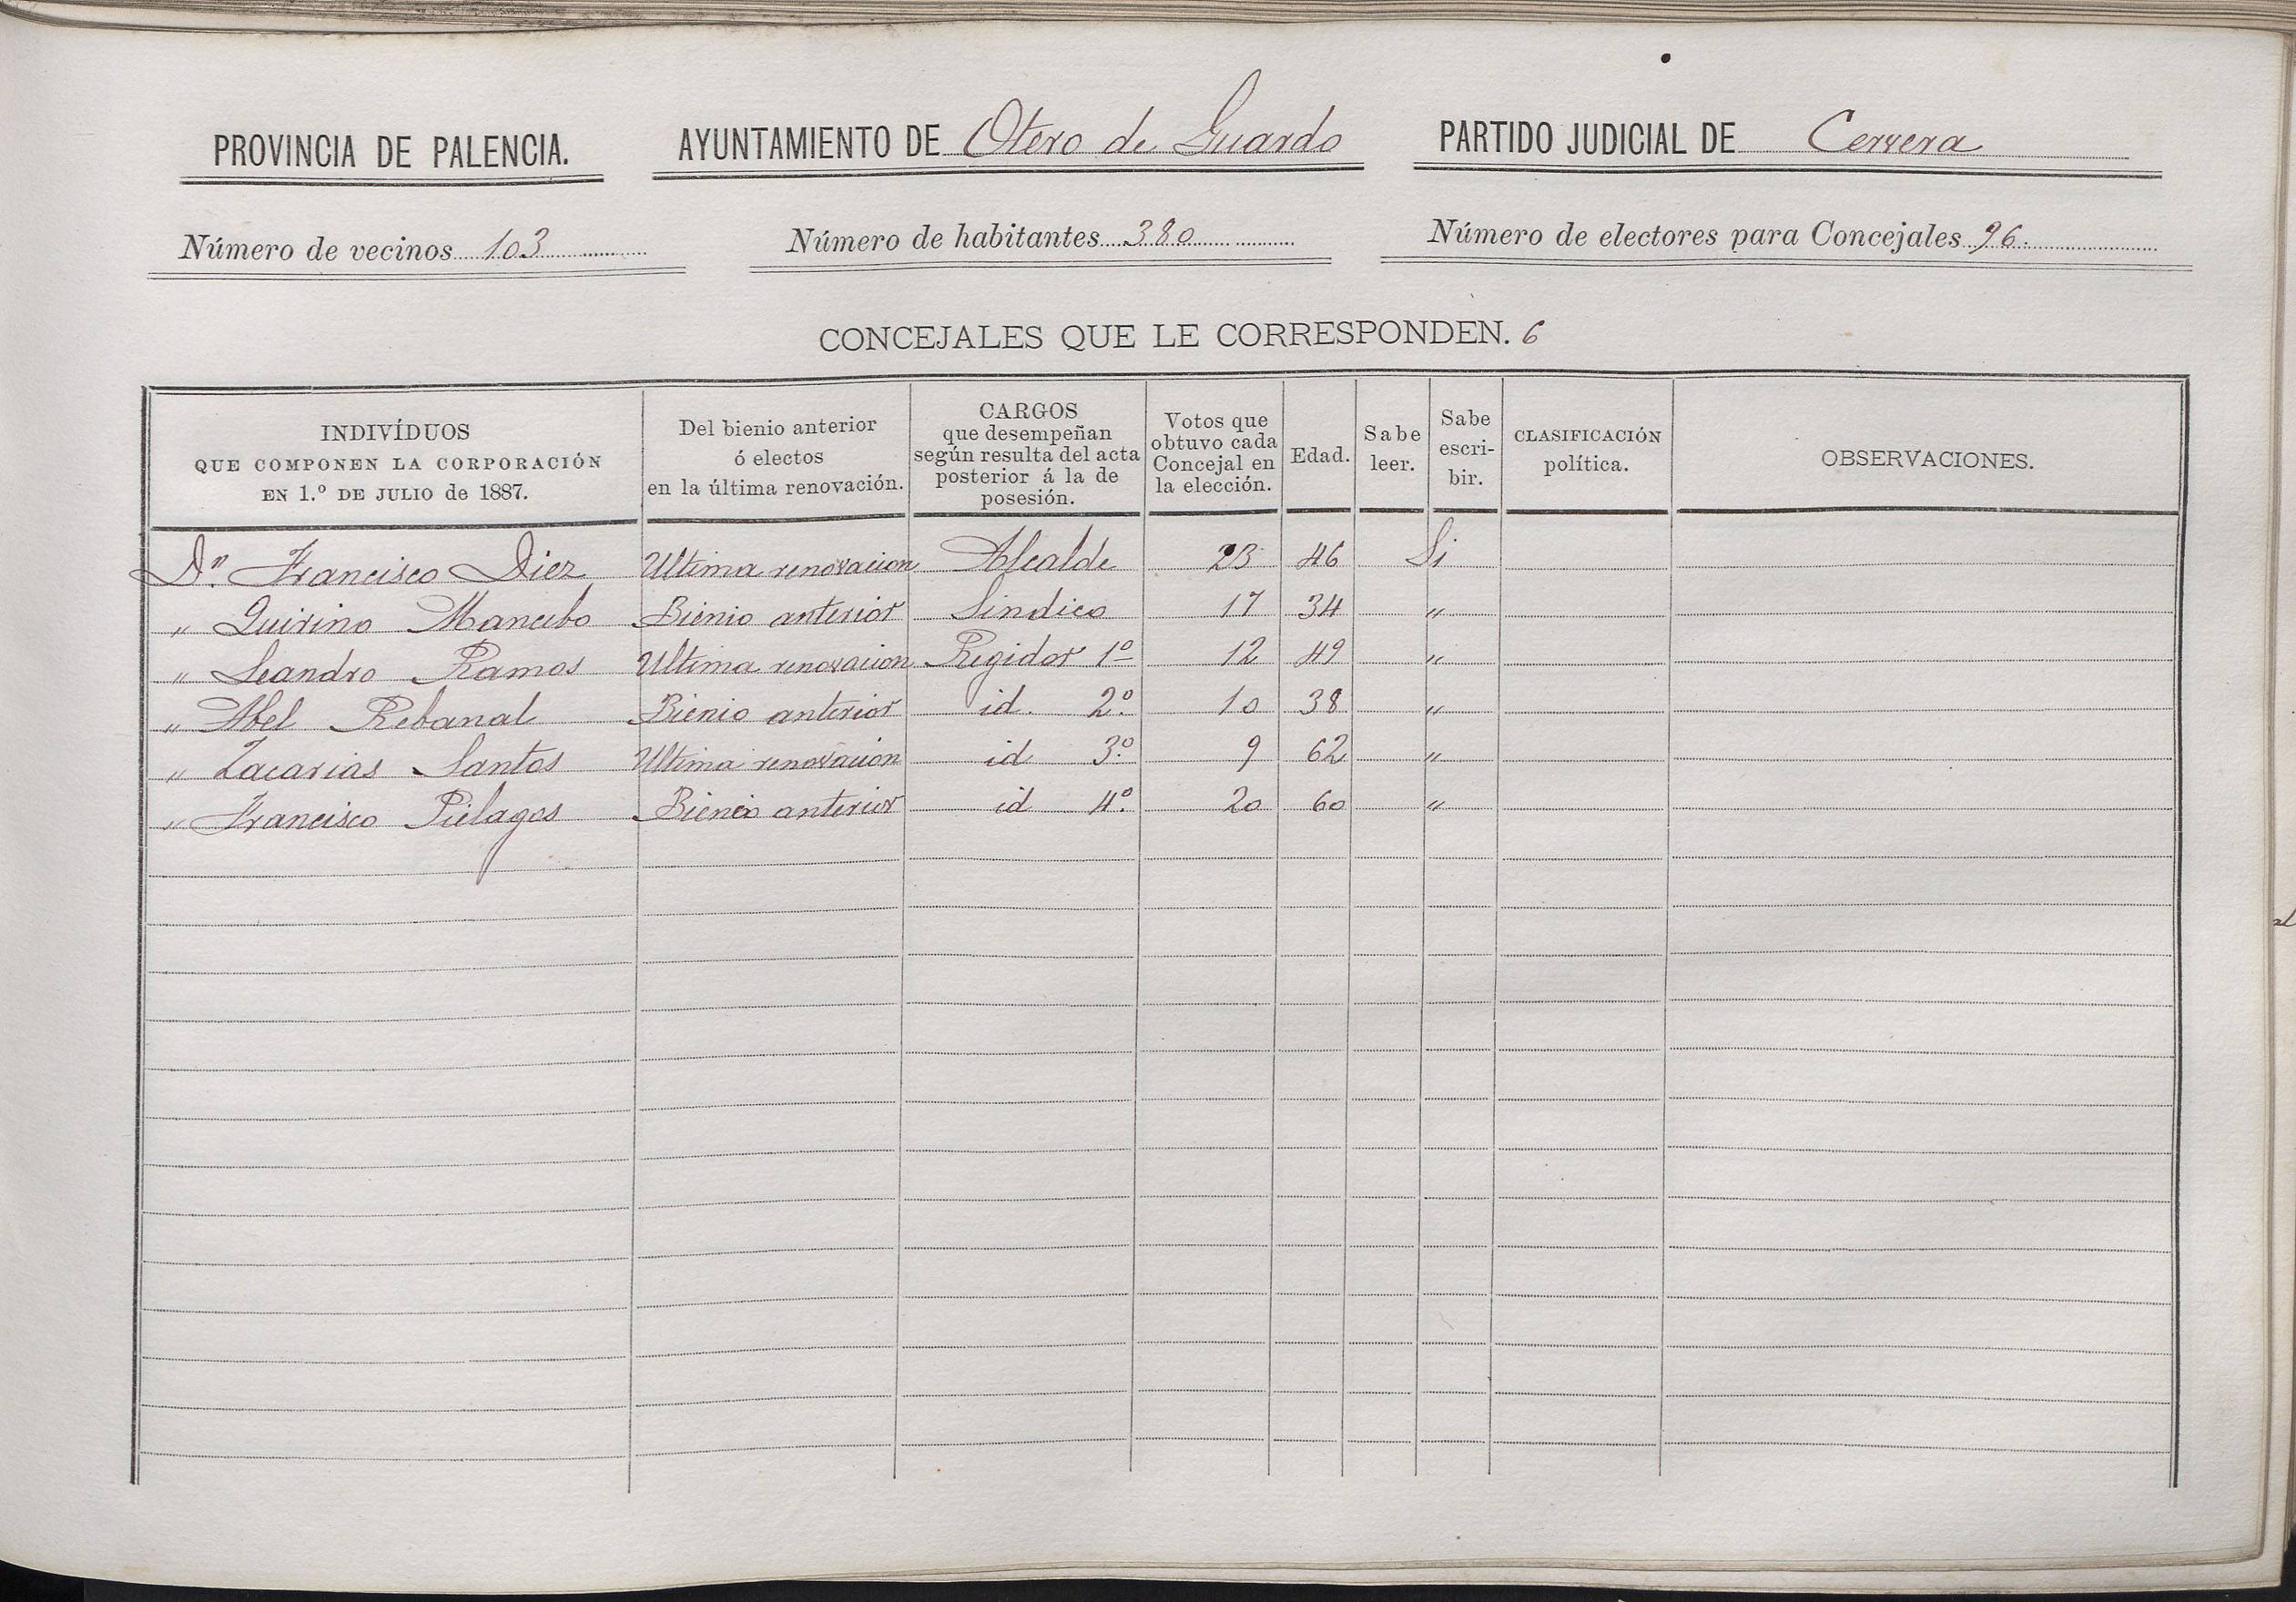 PROVINCIA DE PALENCIA. AYUNTAMIENTO DE Otero de Guardo PARTIDO JUDICIAL DE Cervera
Número de vecinos 103 Número de habitantes 380 Número de electores para Concejales 96.
CONCEJALES QUE LE CORRESPONDEN. 6
INDIVÍDUOS
QUE COMPONEN LA CORPORACIÓN
EN 1.º DE JULIO de 1887.
Del bienio anterior
ó electos
en la última renovación.
CARGOS
que desempeñan
según resulta del acta
posterior á la de
posesión.
Votos que
obtuvo cada
Concejal en
la elección.
Edad.
Sabe
leer.
Sabe
escri-
bir.
CLASIFICACIÓN
política.
OBSERVACIONES.
Dn. Francisco Diez Ultima renovacion Alcalde 23 46 Si
" Quirino Mancebo Bienio anterior Sindico 17 34 "
" Leandro Ramos Ultima renovacion Regidor 1º 12 49 "
" Abel Rebanal Bienio anterior id. 2º 10 38 "
" Zacarias Santos Ultima renovacion id 3º 9 62 "
" Francisco Pielagos Bienio anterior id 4º 20 60 "